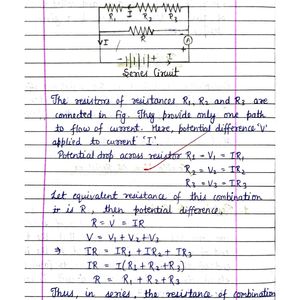 R₁ I R₂ R₃
R
VI A
- + I
Series Circuit
The resistors of resistances R₁, R₂ and R₃ are
connected in Fig. They provide only one path
to flow of current. Here, potential difference 'V'
applied to current 'I'.
Potential drop across resistor R₁ = V₁ = IR₁
R₂ = V₂ = IR₂
R₃ = V₃ = IR₃
Let equivalent resistance of this combination
is R, then potential difference,
R = V = IR
V = V₁ + V₂ + V₃
⇒ IR = IR₁ + IR₂ + IR₃
IR = I(R₁ + R₂ + R₃)
R = R₁ + R₂ + R₃
Thus, in series, the resistance of combination